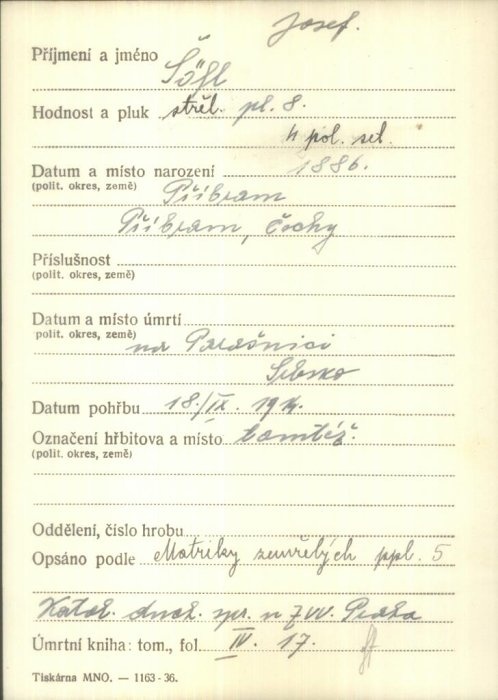 Josef.
Příjmení a jméno Sögl
Hodnost a pluk střel. pl. 8.
4 pol. set.
Datum a místo narození 1886.
(polit. okres, země) Příbram
Příbram, Čechy
Příslušnost
(polit. okres, země)
Datum a místo úmrtí
polit. okres, země) na Parašnici
Srbsko
Datum pohřbu 18./IX. 1914.
Označení hřbitova a místo tamtéž.
(polit. okres, země)
Oddělení, číslo hrobu
Opsáno podle Matriky zemřelých ppl. 5
Katol. duch. spr. u ZVV. Praha
Úmrtní kniha: tom., fol. IV. 17.
Tiskárna MNO. — 1163-36.